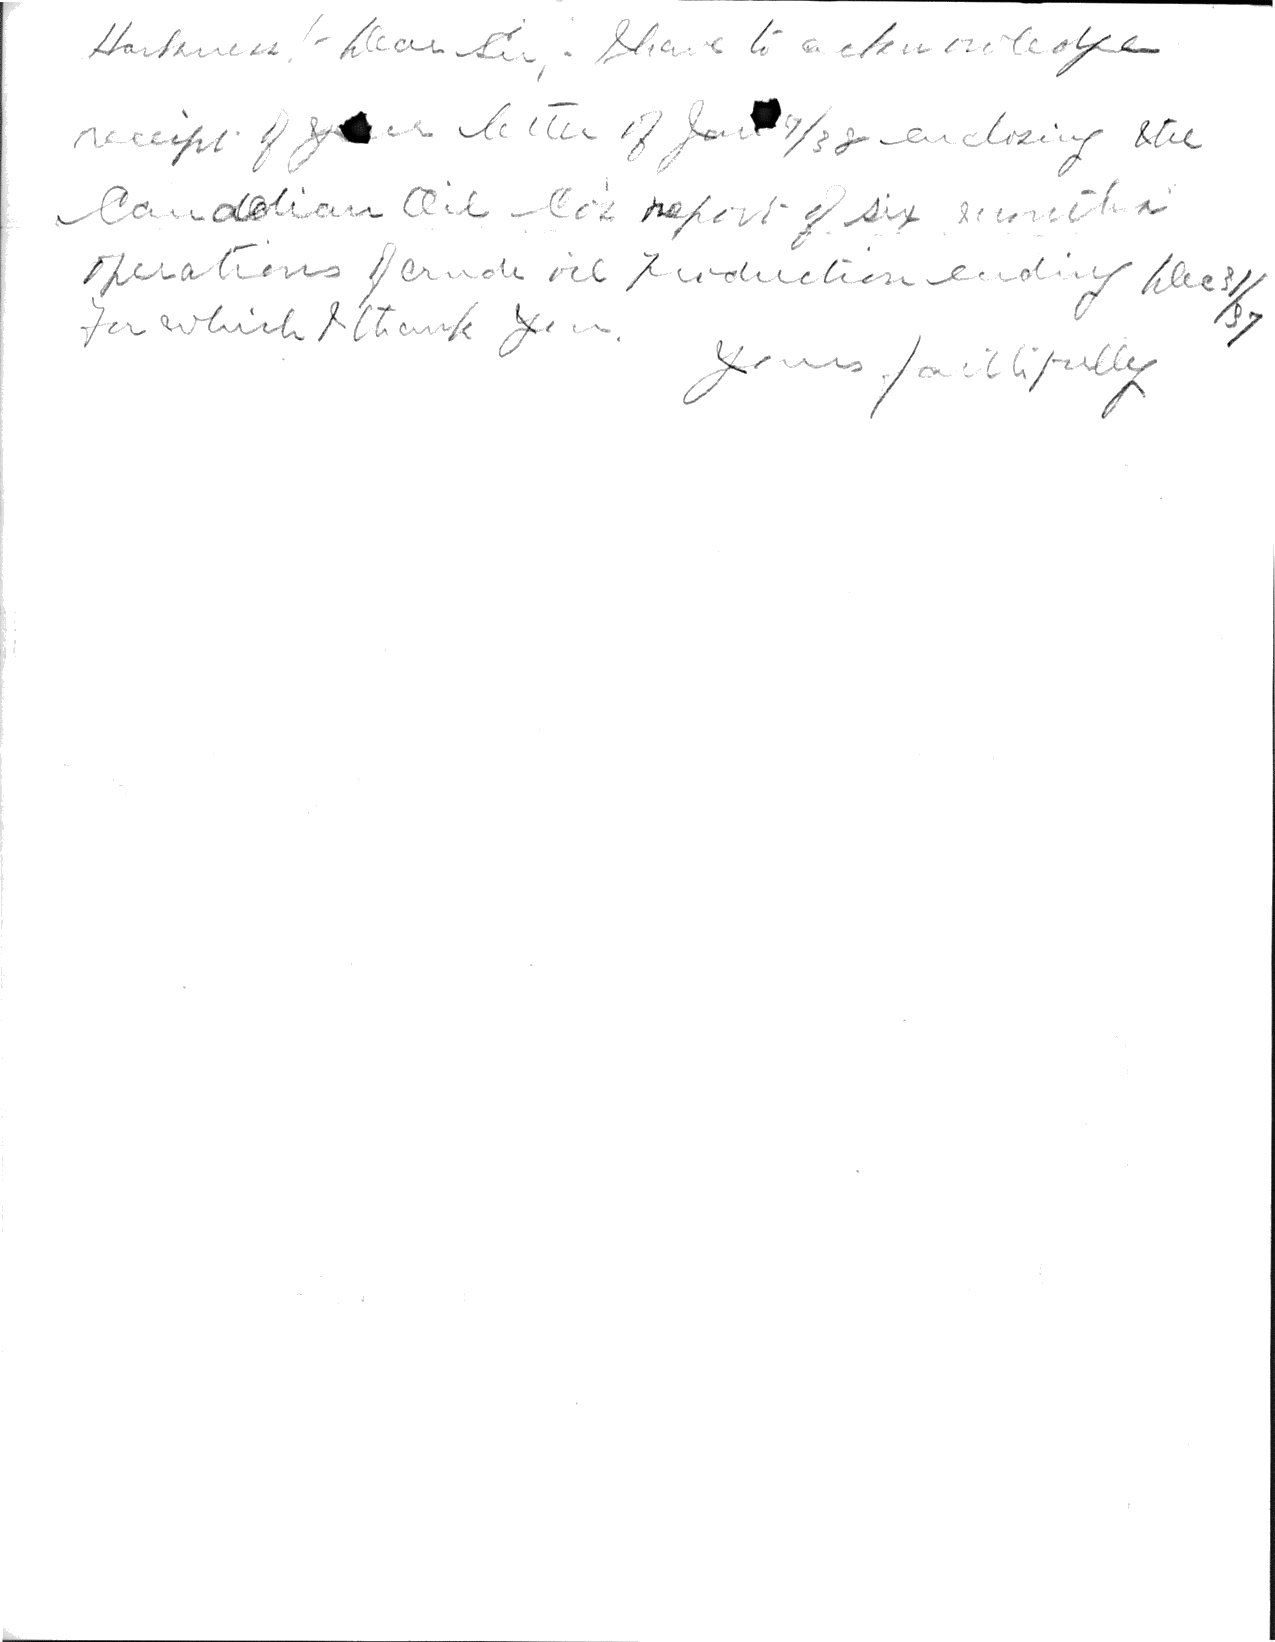 Harkness!- Dear Sir,- I have to acknowledge
receipt of your letter of Jan 7/38 enclosing the
Canadian Oil Co's report of six months'
operations of crude oil production ending Dec 31/37
for which I thank you.
Yours faithfully